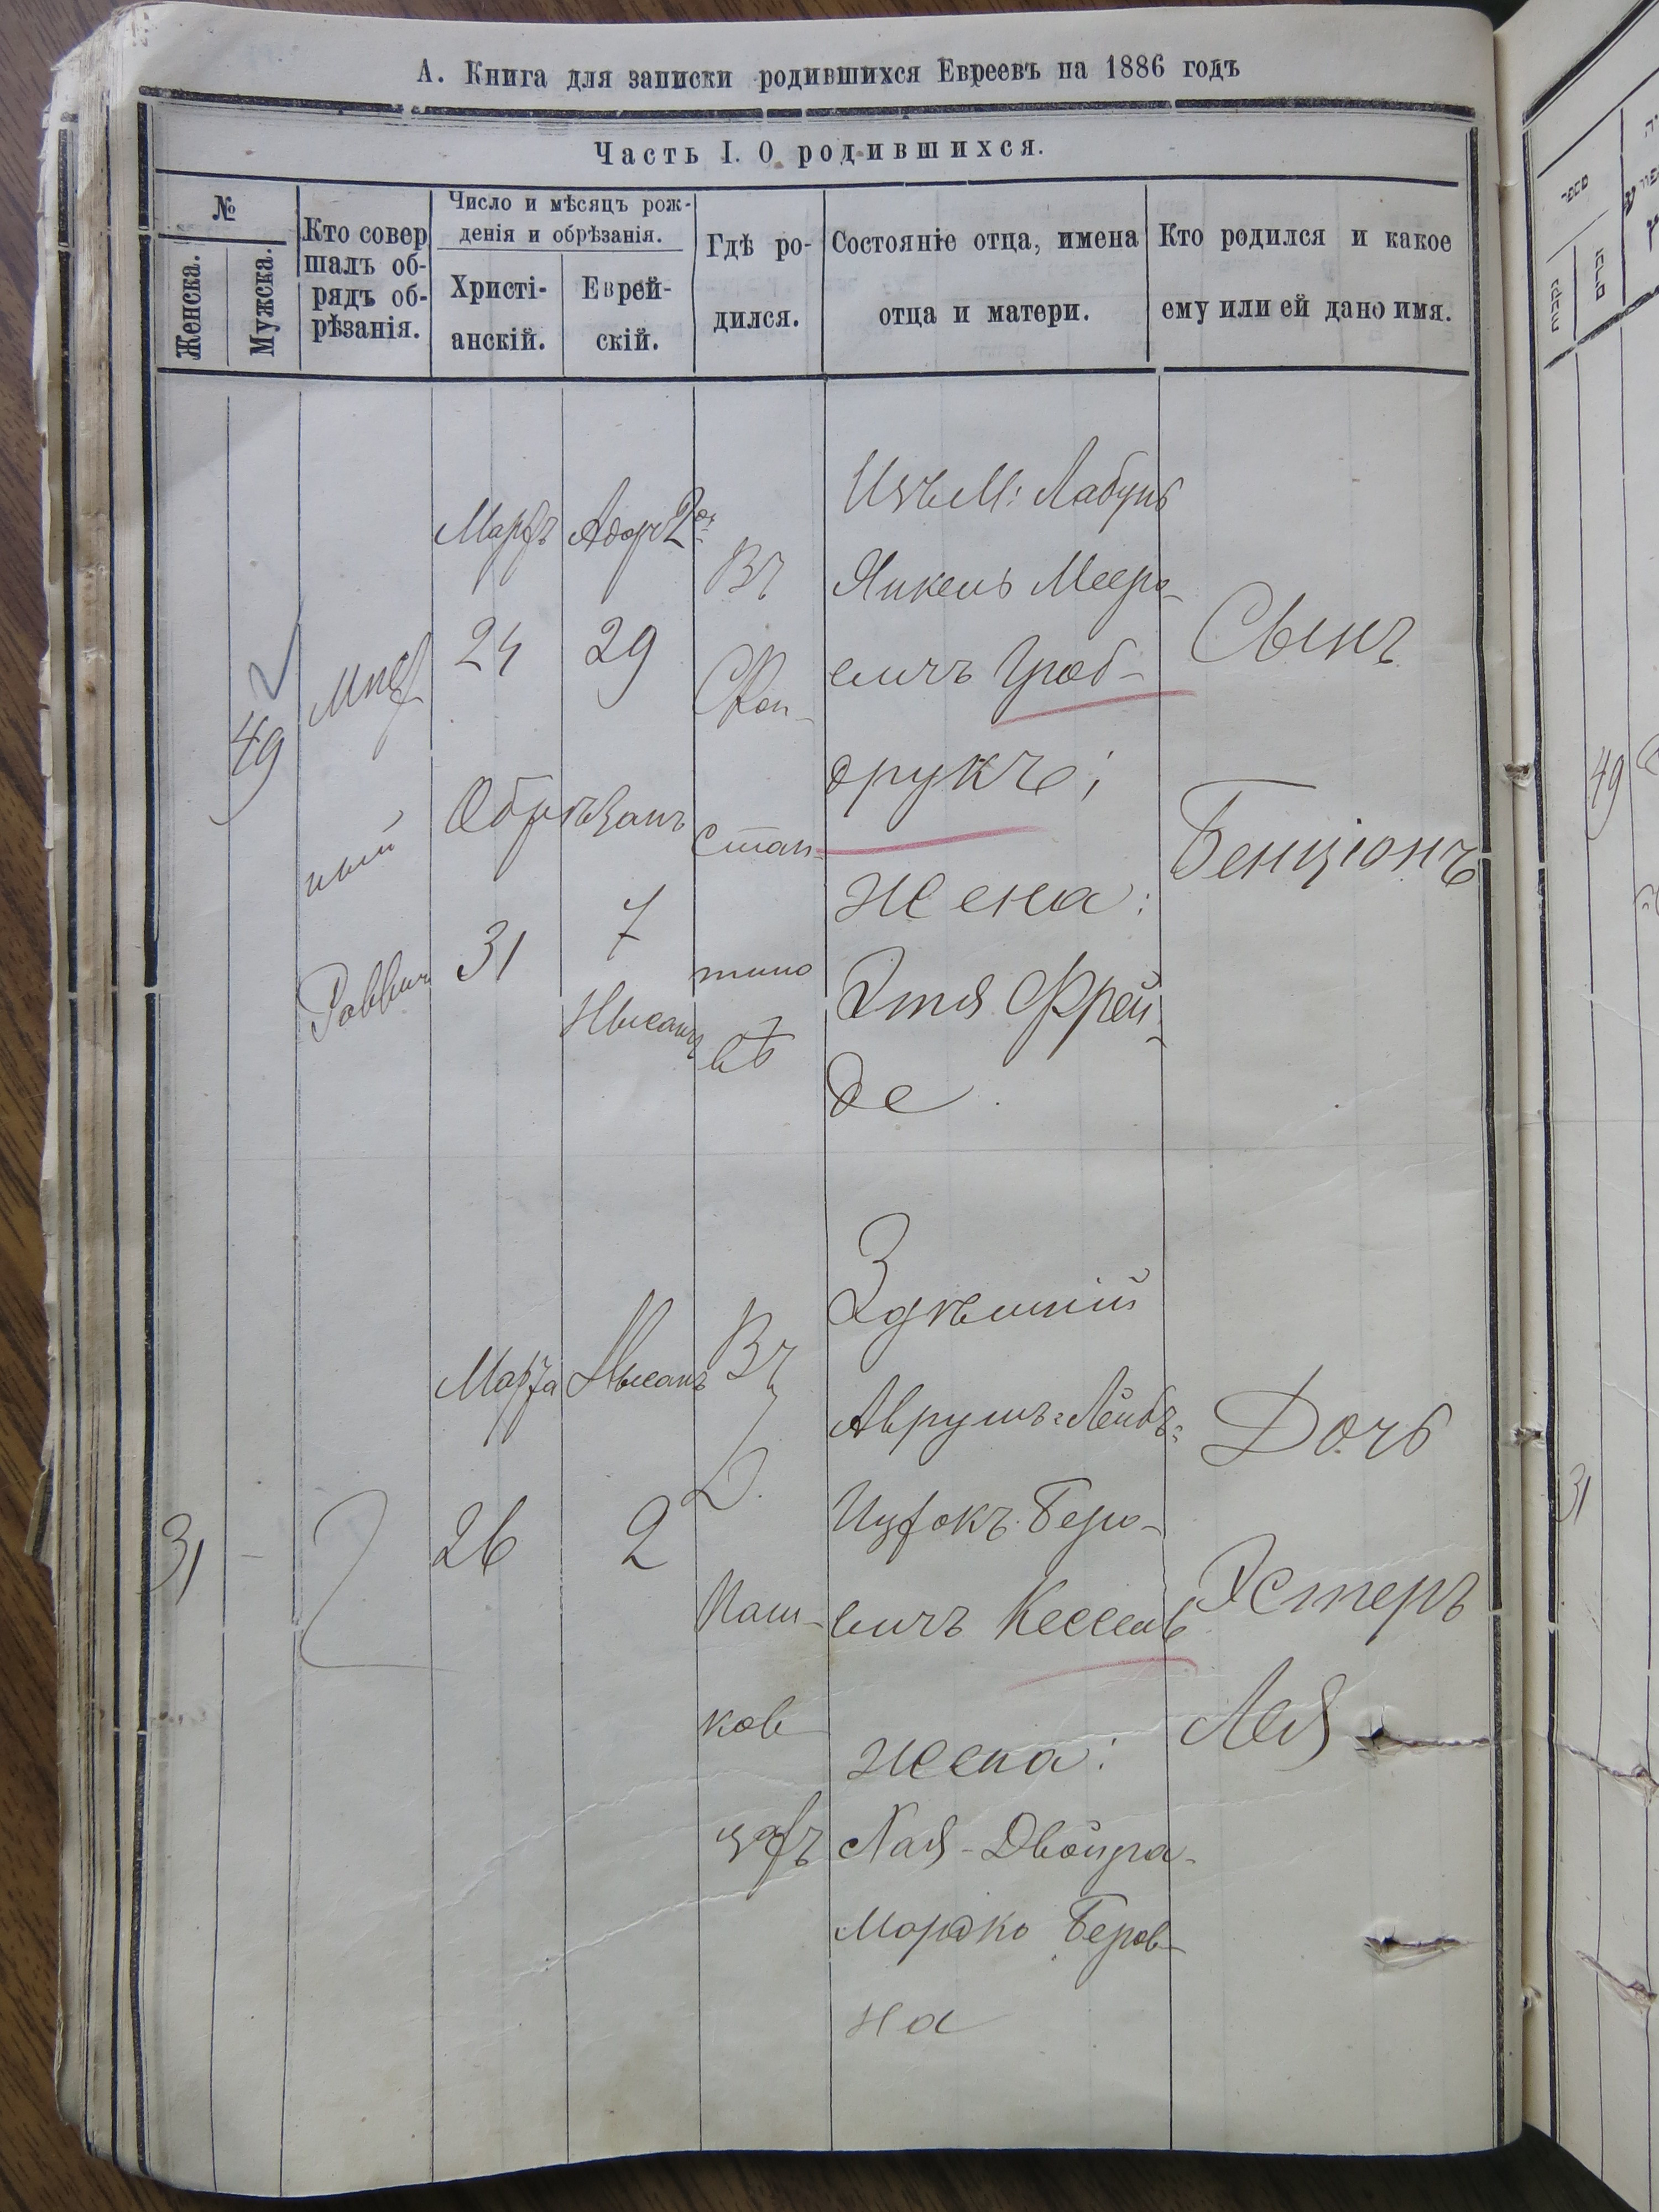 А. Книга для записки родившихся Евреевъ на 1886 годъ
Часть I. О родившихся.
№
Женска.
Мужска.
Кто совер
шалъ об-
рядъ об-
рѣзанія.
Число и мѣсяцъ рож-
денія и обрѣзанія.
Христі-
анскій.
Еврей-
скій.
Гдѣ ро-
дился.
Состояніе отца, имена
отца и матери.
Кто родился и какое
ему или ей дано имя.
49
ный
Раввинъ
Мартъ
24
Обрѣзанъ
31
Адаръ 2й
29
7
Нысанъ
Въ
Кон-
стан-
тино
вѣ
Изъ М: Лабунь
Янкель Мееро-
вичъ Град-
друкъ;
жена:
Этя Фрей-
де
Сынъ
Бенціонъ
31
Марта
26
Нысанъ
2
Въ
Д.
Паш-
ков
цахъ
Здѣшній
Аврумъ=Лейбъ=
Ицхокъ Беро-
вичъ Кессель
жена:
Хая-Двойра-
Мордко Беров-
на
Дочь
Эстеръ
Лея
49
31